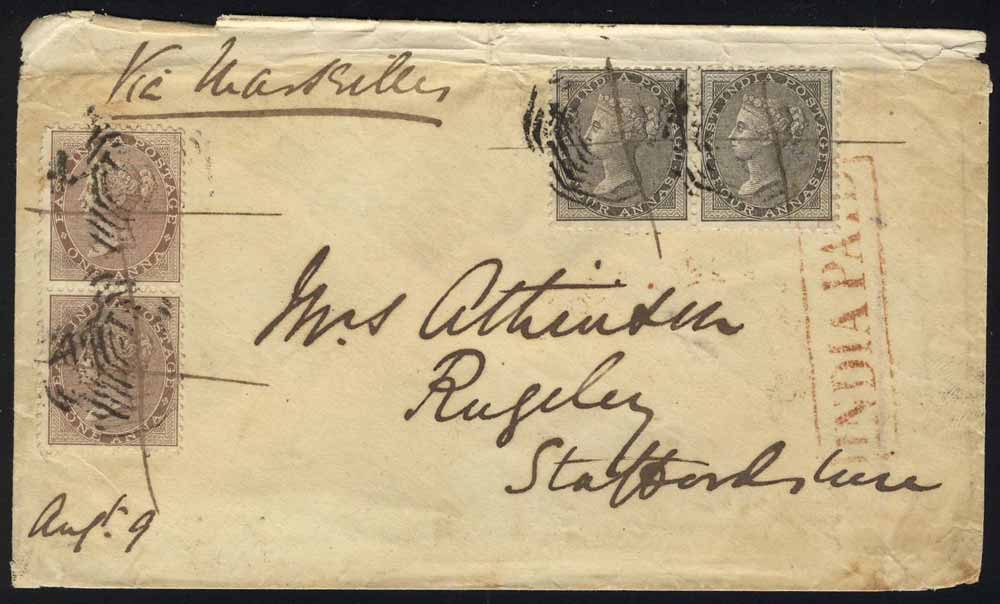 Via Marseilles
EAST INDIA POSTAGE
FOUR ANNAS
EAST INDIA POSTAGE
FOUR ANNAS
EAST INDIA POSTAGE
ONE ANNA
EAST INDIA POSTAGE
ONE ANNA
INDIA PAID
Mrs Atkinson
Rugeley
Staffordshire
Augt. 9